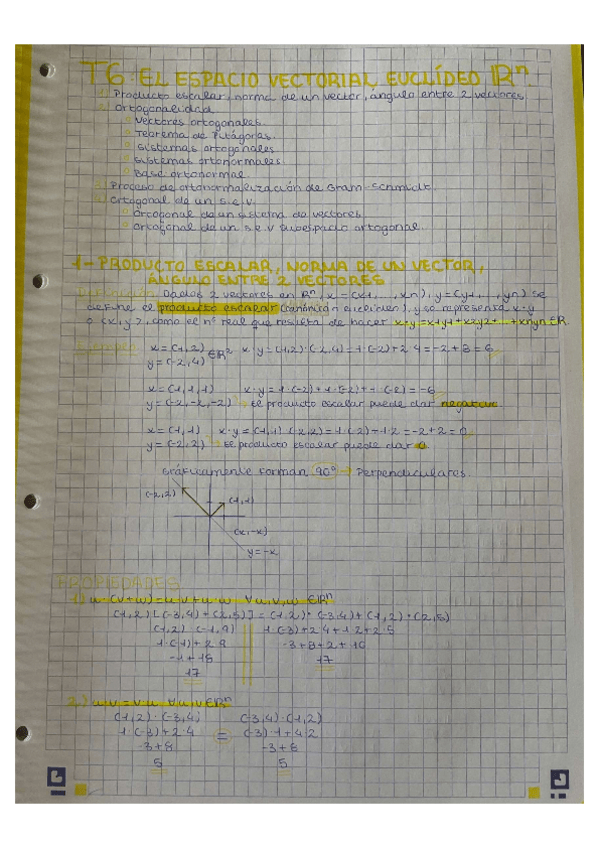 T6: EL ESPACIO VECTORIAL EUCLÍDEO ℝⁿ
1) Producto escalar, norma de un vector, ángulo entre 2 vectores
2) Ortogonalidad
○ Vectores ortogonales.
○ Teorema de Pitágoras.
○ Sistemas ortogonales
○ Sistemas ortonormales.
○ Base ortonormal.
3) Proceso de ortonormalización de Gram-Schmidt.
4) Ortogonal de un s.e.v.
○ Ortogonal de un sistema de vectores
○ Ortogonal de un s.e.v subespacio ortogonal.
1- PRODUCTO ESCALAR, NORMA DE UN VECTOR,
ÁNGULO ENTRE 2 VECTORES
Definición: Dados 2 vectores en ℝⁿ, x=(x1,...,xn), y=(y1,...,yn) se
define el producto escalar (canónico o euclídeo), y se representa x·y
o <x,y>, como el nº real que resulta de hacer x·y=x1y1+x2y2+...+xnyn∈ℝ.
Ejemplo: x=(1,2) ∈ℝ² x·y=(1,2)·(-2,4)=1·(-2)+2·4=-2+8=6
y=(-2,4)
x=(1,1,1) x·y=1·(-2)+1·(-2)+1·(-2)=-6
y=(-2,-2,-2) → El producto escalar puede dar negativo.
x=(1,1) x·y=(1,1)·(-2,2)=1·(-2)+1·2=-2+2=0
y=(-2,2) → El producto escalar puede dar 0.
Gráficamente forman 90º → Perpendiculares.
(-2,2) (1,1)
(x,-x)
y=-x
PROPIEDADES
1.) u·(v+w)=u·v+u·w ∀u,v,w ∈ℝⁿ
(1,2)[(-3,4)+(2,5)]=(1,2)·(-3,4)+(1,2)·(2,5)
(1,2)·(-1,9) 1·(-3)+2·4+1·2+2·5
1·(-1)+2·9 -3+8+2+10
-1+18 17
17
2.) u·v=v·u ∀u,v∈ℝⁿ
(1,2)·(-3,4) (-3,4)·(1,2)
1·(-3)+2·4 = (-3)·1+4·2
-3+8 -3+8
5 5